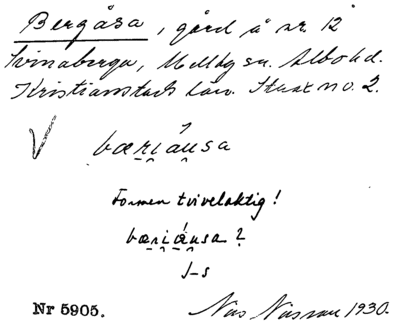 Bergåsa, gård å nr. 12
Svinaberga, Mellby sn. Albo hd.
Kristianstads län.
V bæriåusa
Formen tvivelaktig!
bæriåusa?
J-s
Nr 5905. Nils Nilsson 1930.